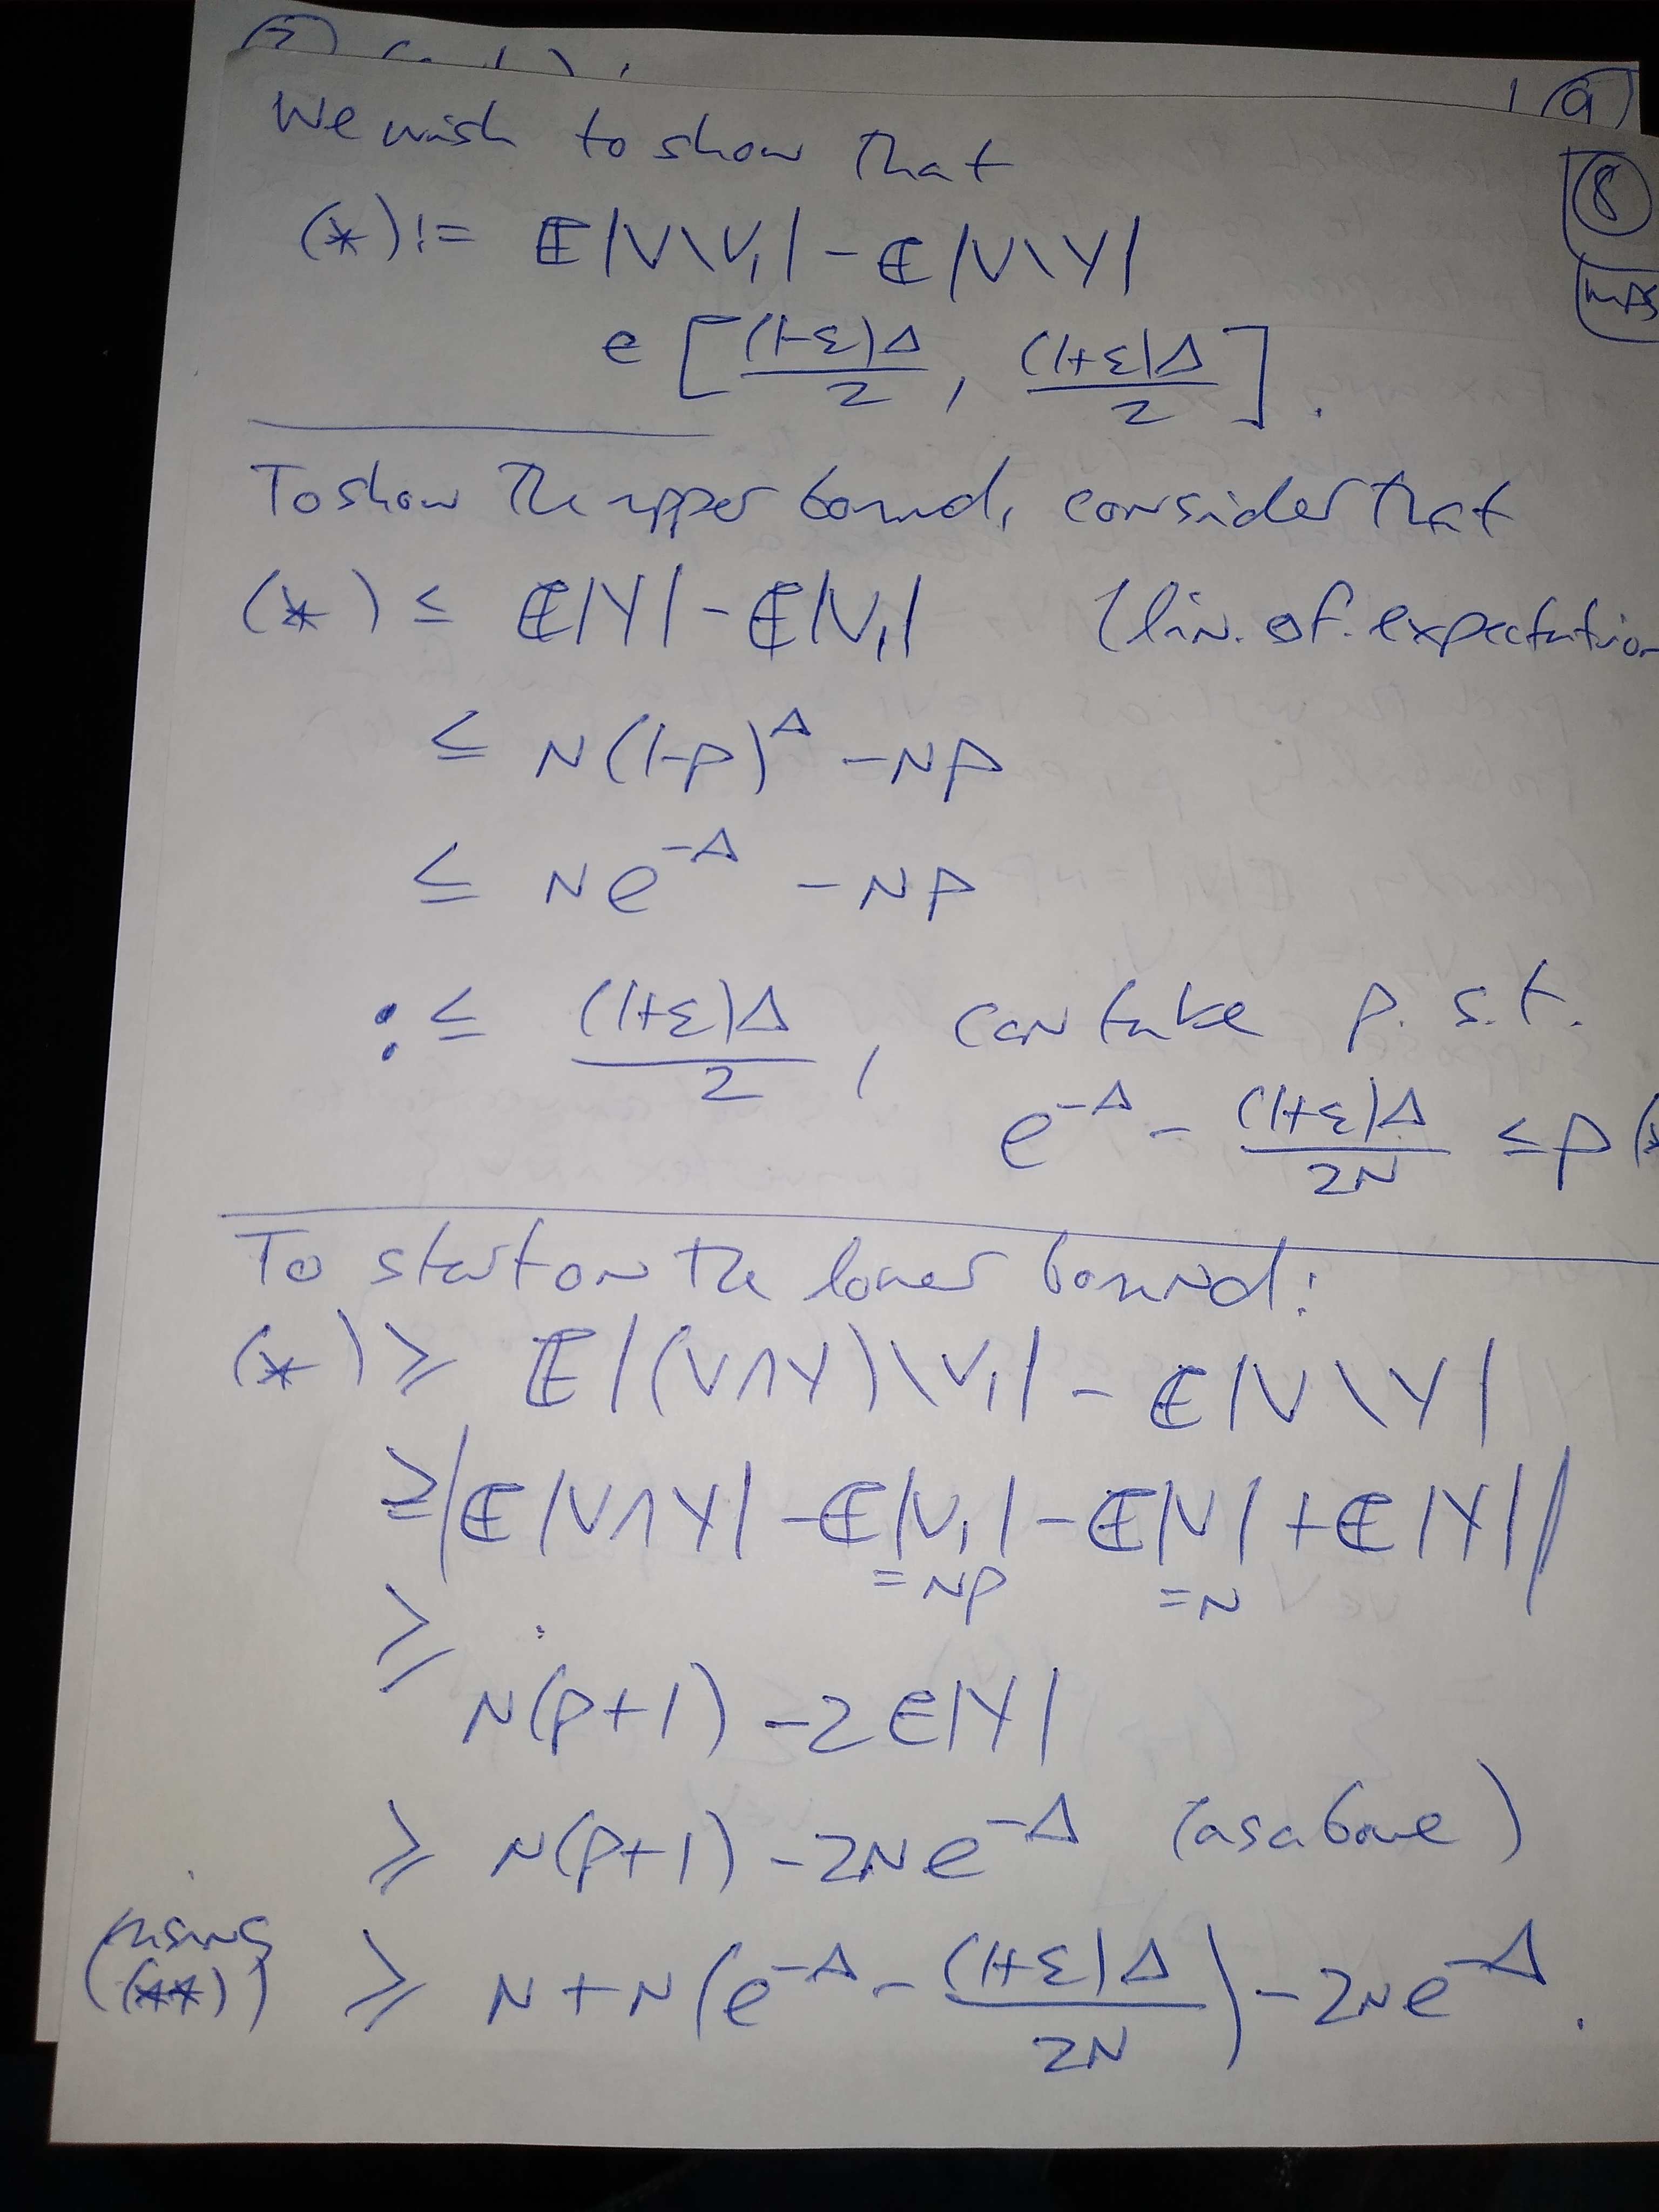 9
We wish to show that
8
(*) := 𝔼|V\V₁| - 𝔼|V\Y|
∈ [(1-ε)Δ/2, (1+ε)Δ/2].
To show the upper bound, consider that
(*) ≤ 𝔼|Y| - 𝔼|V₁| (lin. of. expectation
≤ N(1-p)^Δ - Np
≤ Ne^{-Δ} - Np
:≤ (1+ε)Δ/2, can take p. s.t.
e^{-Δ} - (1+ε)Δ/2N ≤ p (*
To start on the lower bound:
(*) ≥ 𝔼|(V∩Y)\V₁| - 𝔼|V\Y|
≥ |𝔼|V∩Y| - 𝔼|V₁| - 𝔼|V| + 𝔼|Y||
=Np =N
≥
N(p+1) - 2𝔼|Y|
≥ N(p+1) - 2Ne^{-Δ} (as above)
(using (**)) ≥ N + N(e^{-Δ} - (1+ε)Δ/2N) - 2Ne^{-Δ}.